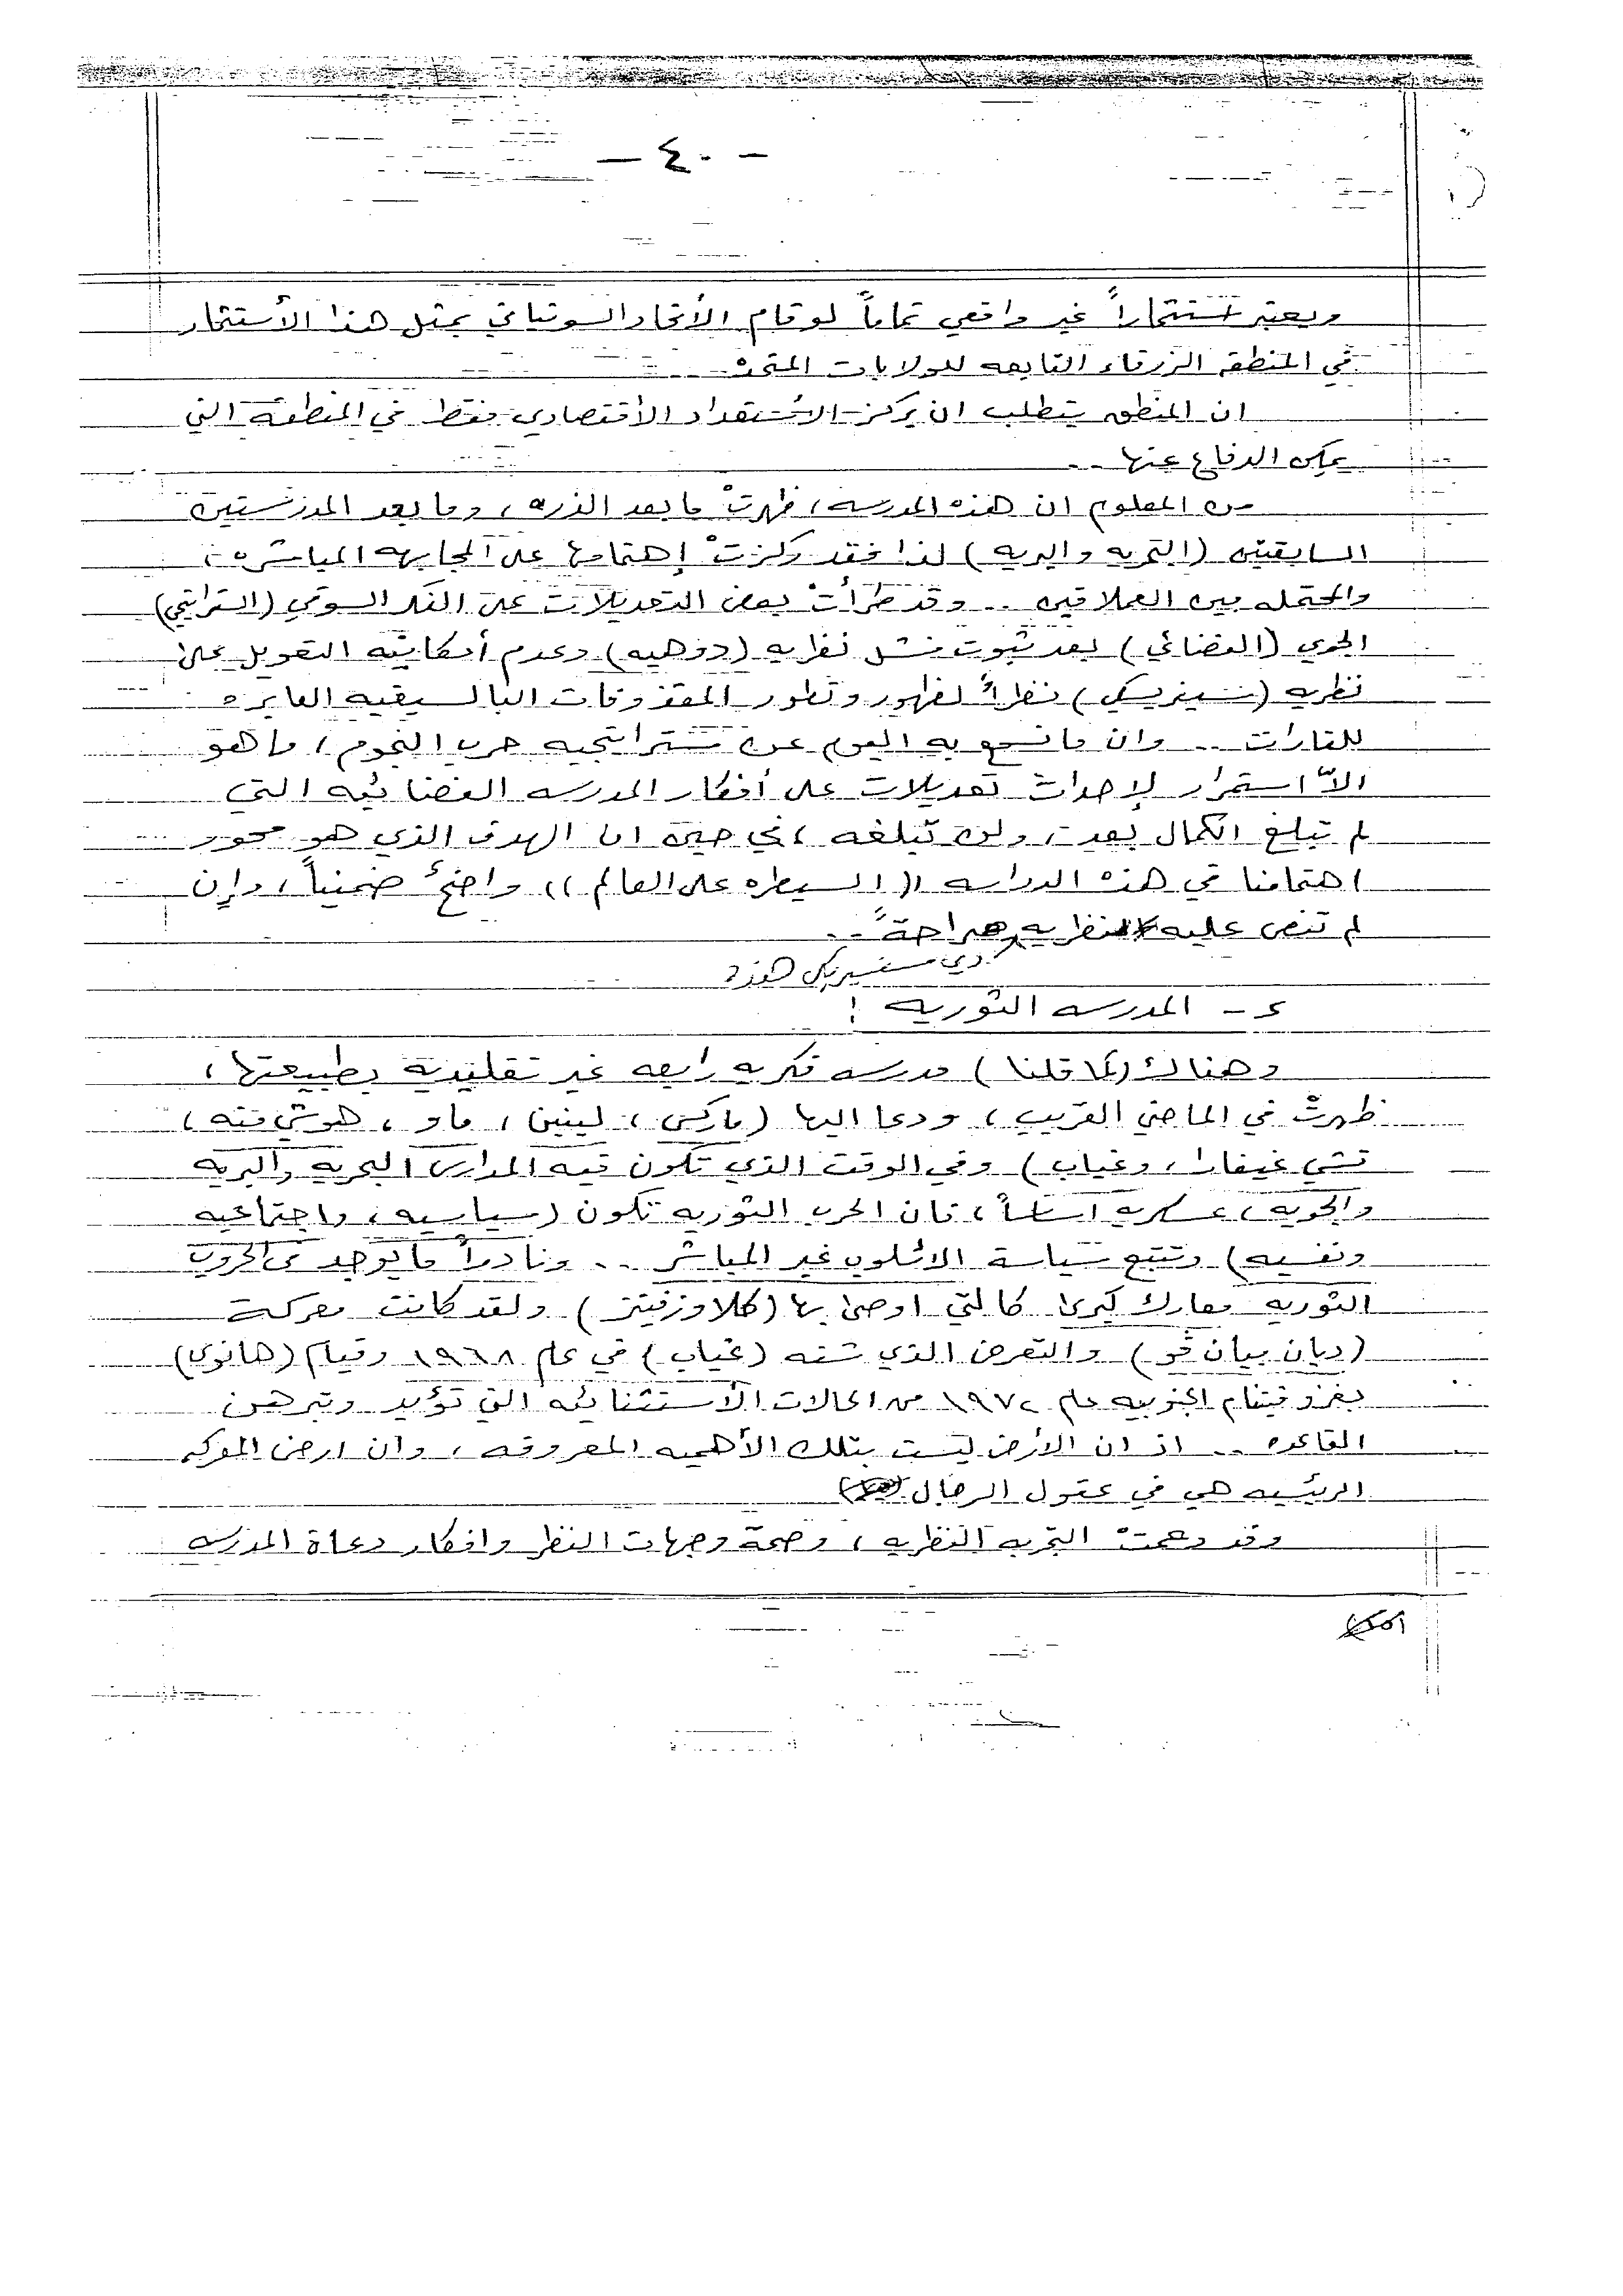 - ٤٠ -
ويعتبر استثماراً غير واقعي تماماً لو قام الأتحاد السوفياتي بمثل هذا الأستثمار
في المنطقه الزرقاء التابعه للولايات المتحده ..
ان المنطق يتطلب ان يركز الأستعداد الأقتصادي فقط في المنطقة التي
يمكن الدفاع عنها ..
من المعلوم ان هذه المدرسه ، ظهرتْ ما بعد الذره ، وما بعد المدرستين
السابقتين (البحريه والبريه) لذا فقد ركزتْ إهتمامها على المجابهه المباشره ،
والمحتمله بين العملاقين .. وقد طرأتْ بعض التعديلات على الفكر السوقي (الستراتيجي)
الجوي (الفضائي) بعد ثبوت فشل نظريه (دوهيه) وعدم أمكانيته التعويل على
نظريه (سيفرسكي) نظراً لظهور وتطور المقذوفات البالسيقيه العابره
للقارات .. وان ما نسمع به اليوم عن ستراتيجيه حرب النجوم ، ما هو
الاّ استمرار لإحداث تعديلات على أفكار المدرسه الفضائيه التي
لم تبلغ الكمال بعد ، ولن تبلغه ، في حين ان الهدف الذي هو محور
اهتمامنا في هذه الدراسه ((السيطره على العالم)) واضحٌ ضمنياً ، وإن
لم تنص عليه نظريه صراحةً ..
دي سفيرسكي هذه
٤ - المدرسه الثوريه :
وهناك (كما قلنا) مدرسه فكريه رابعه غير تقليدية بطبيعتها ،
ظهرتْ في الماضي القريب ، ودعا اليها (ماركس ، لينين ، ماو ، هوشي منه ،
تشي غيفارا ، وغياب) وفي الوقت الذي تكون فيه المدارس البحريه والبريه
والجويه ، عسكريه اساساً ، فان الحرب الثوريه تكون (سياسيه ، واجتماعيه
ونفسيه) وتتبع سياسة الاسلوب غير المباشر .. ونادراً ما يوجد في الحروب
الثوريه معارك كبرى كالتي اوصى بها (كلاوزفيتز) ولقد كانت معركة
(ديان بيان فو) والتعرض الذي شنه (غياب) في عام ١٩٦٨ وقيام (هانوي)
بغزو فيتنام الجنوبيه عام ١٩٧٢ من الحالات الأستثنائيه التي تؤيد وتبرهن
القاعده .. اذ ان الأرض ليست بتلك الأهميه المعروفه ، وان ارض المعركه
الرئيسيه هي في عقول الرجال
وقد دعمتْ التجربه النظريه ، وصحة وجهات النظر وافكار دعاة المدرسه